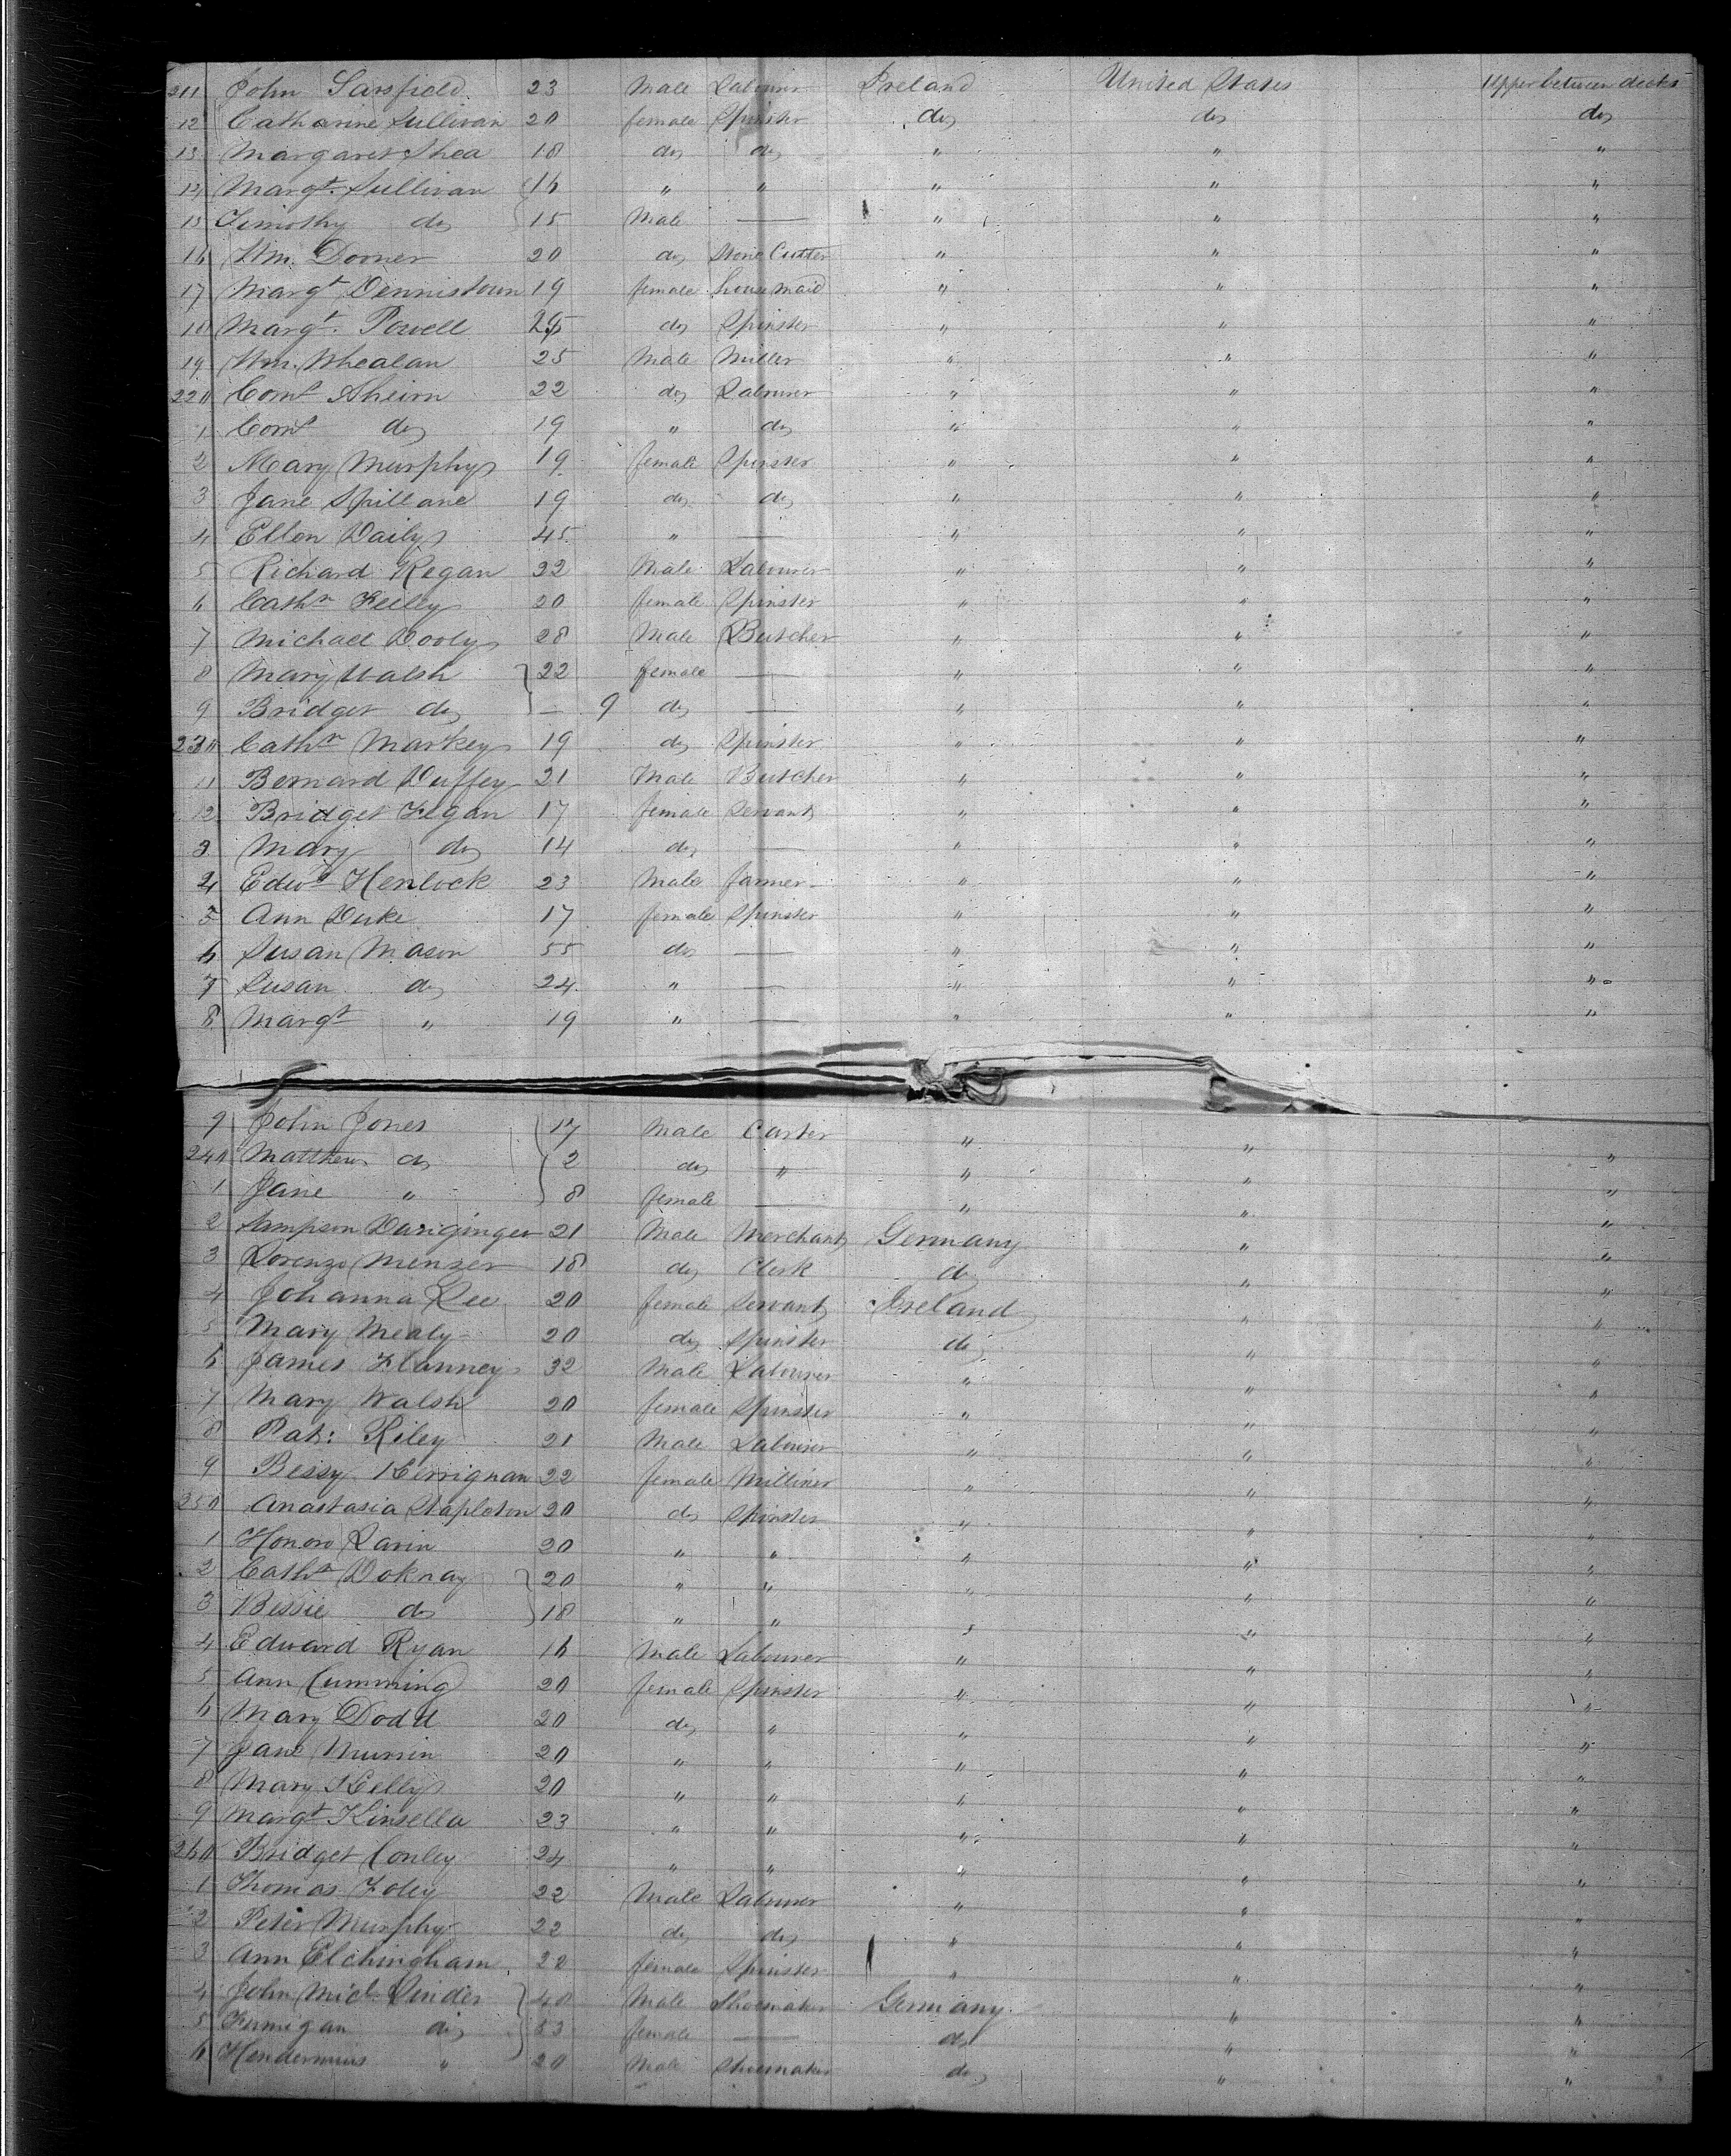 211 John Sarsfield 23 Male Labourer Ireland United States Upper between decks
12 Catharine Sullivan 20 female Spinster do do do
13 Margaret Shea 18 do do " " "
14 Margt. Sullivan 16 " " " " "
15 Timothy do 15 Male — " " "
16 Wm. Dooner 20 do Stone Cutter " " "
17 Margt Dennistown 19 female house maid " " "
18 Margt. Powell 25 do Spinster " " "
19 Wm. Whealan 25 Male Miller " " "
220 Corns Aheirn 22 do Labourer " " "
1 Corns do 19 " do " " "
2 Mary Murphy 19 female Spinster " " "
3 Jane Spillane 19 do do " " "
4 Ellen Daily 45 " — " " "
5 Richard Regan 22 Male Labourer " " "
6 Cathn Feiley 20 female Spinster " " "
7 Michael Dooly 28 Male Butcher " " "
8 Mary Walsh 22 female — " " "
9 Bridget do — 9 do — " " "
230 Cathn Markey 19 do Spinster " " "
11 Bernard Duffey 21 Male Butcher " " "
12 Bridget Fegan 17 female Servant " " "
3 Mary do 14 do — " " "
4 Edwd Henlock 23 Male farmer " " "
5 Ann Duke 17 female Spinster " " "
6 Susan Mason 55 do — " " "
7 Susan do 24 " — " " "
8 Margt " 19 " — " " "
9 John Jones 17 Male Carter " " "
240 Matthew do 2 do " " " "
1 Jane " 8 female — " " "
2 Sampson 21 Male Merchant Germany " "
3 Lorenzo Menzer 18 do Clerk do " "
4 Johanna Lee 20 female Servant Ireland " "
5 Mary Mealy 20 do Spinster do " "
6 James Flanney 32 Male Labourer " " "
7 Mary Walsh 20 female Spinster " " "
8 Pat: Riley 21 Male Labourer " " "
9 Bessy Kerrignan 22 female Milliner " " "
250 Anastasia Stapleton 20 do Spinster " " "
1 Honoro Larin 20 " " " " "
2 Cathn Doknay 20 " " " " "
3 Bessie do 18 " " " " "
4 Edward Ryan 16 Male Labourer " " "
5 Ann Cumming 20 female Spinster " " "
6 Mary Dodd 20 do " " " "
7 Jane Murrin 20 " " " " "
8 Mary Kelly 20 " " " " "
9 Margt Kinsella 23 " " " " "
260 Bridget Conley 24 " " " " "
1 Thomas Foley 22 Male Labourer " " "
2 Peter Murphy 22 do do " " "
3 Ann Elchingham 22 female Spinster " " "
4 John Micl. Dinder 40 Male Shoemaker Germany " "
5 do 53 female — do " "
6 " 20 Male Shoemaker do " "